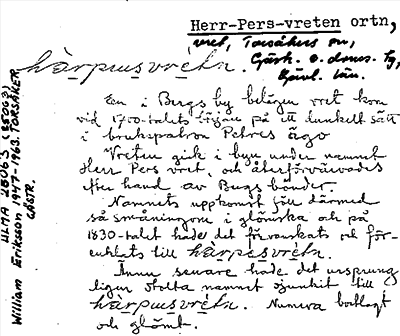 Herr-Pers-vreten ortn,
vret, Torsåkers sn,
Gästr. o. doms. tg,
Gävl. län.
hàrpusvréttn.
En i Bergs by belägen vret kom
vid 1700-talets början på ett dunkelt sätt
i brukspatron Petres ägo
Vreten gick i byn under namnet
Herr Pers vret, och återförvärvades
efter hand av Bergs bönder.
Namnets uppkomst föll därmed
så småningom i glömska och på
1830-talet hade det förvanskats och för-
enklats till hàrpesvréttn.
Ännu senare hade det ursprung
ligen stolta namnet sjunkit till
hàrpusvréttn. Numera bortlagt
och glömt.
ULMA 28063 (28063)
William Eriksson 1947-1963. TORSÅKER
GÄSTR.